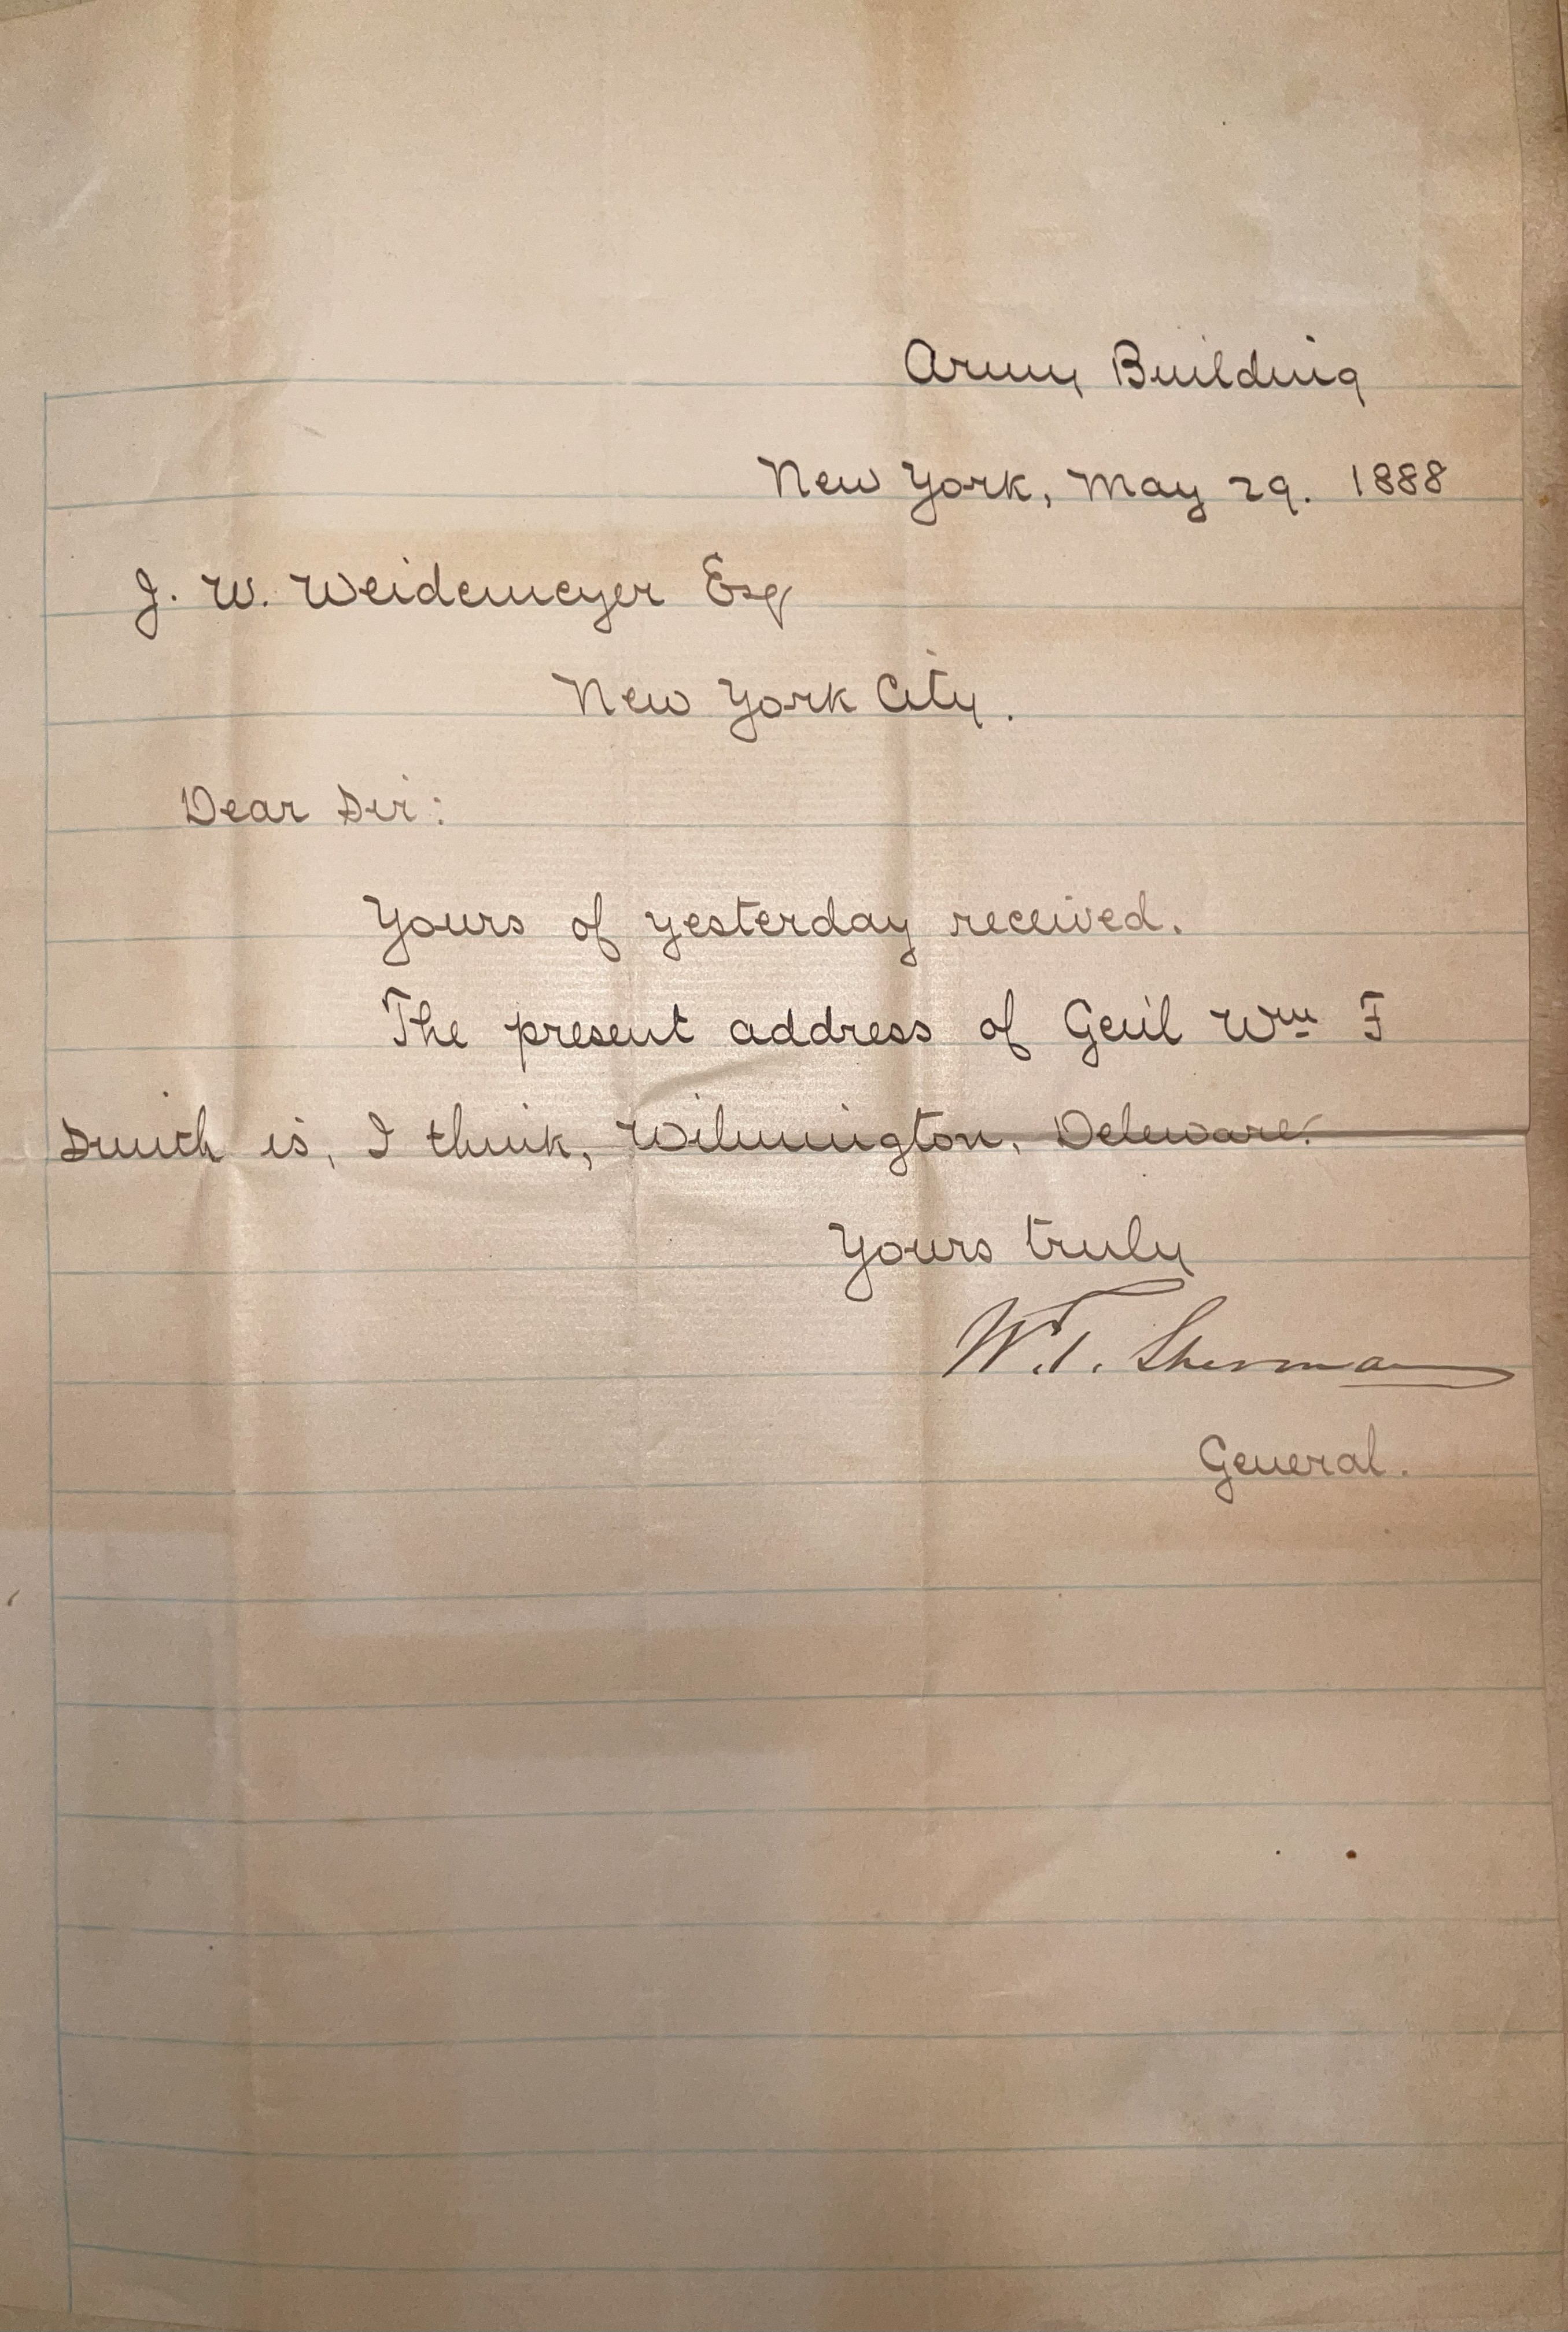 Army Building
New York, May 29. 1888
J. W. Weidemeyer Esq
New York City.
Dear Sir:
Yours of yesterday received.
The present address of Genl Wm F
Smith is, I think, Wilmington, Deleware.
Yours truly
W. T. Sherman
General.